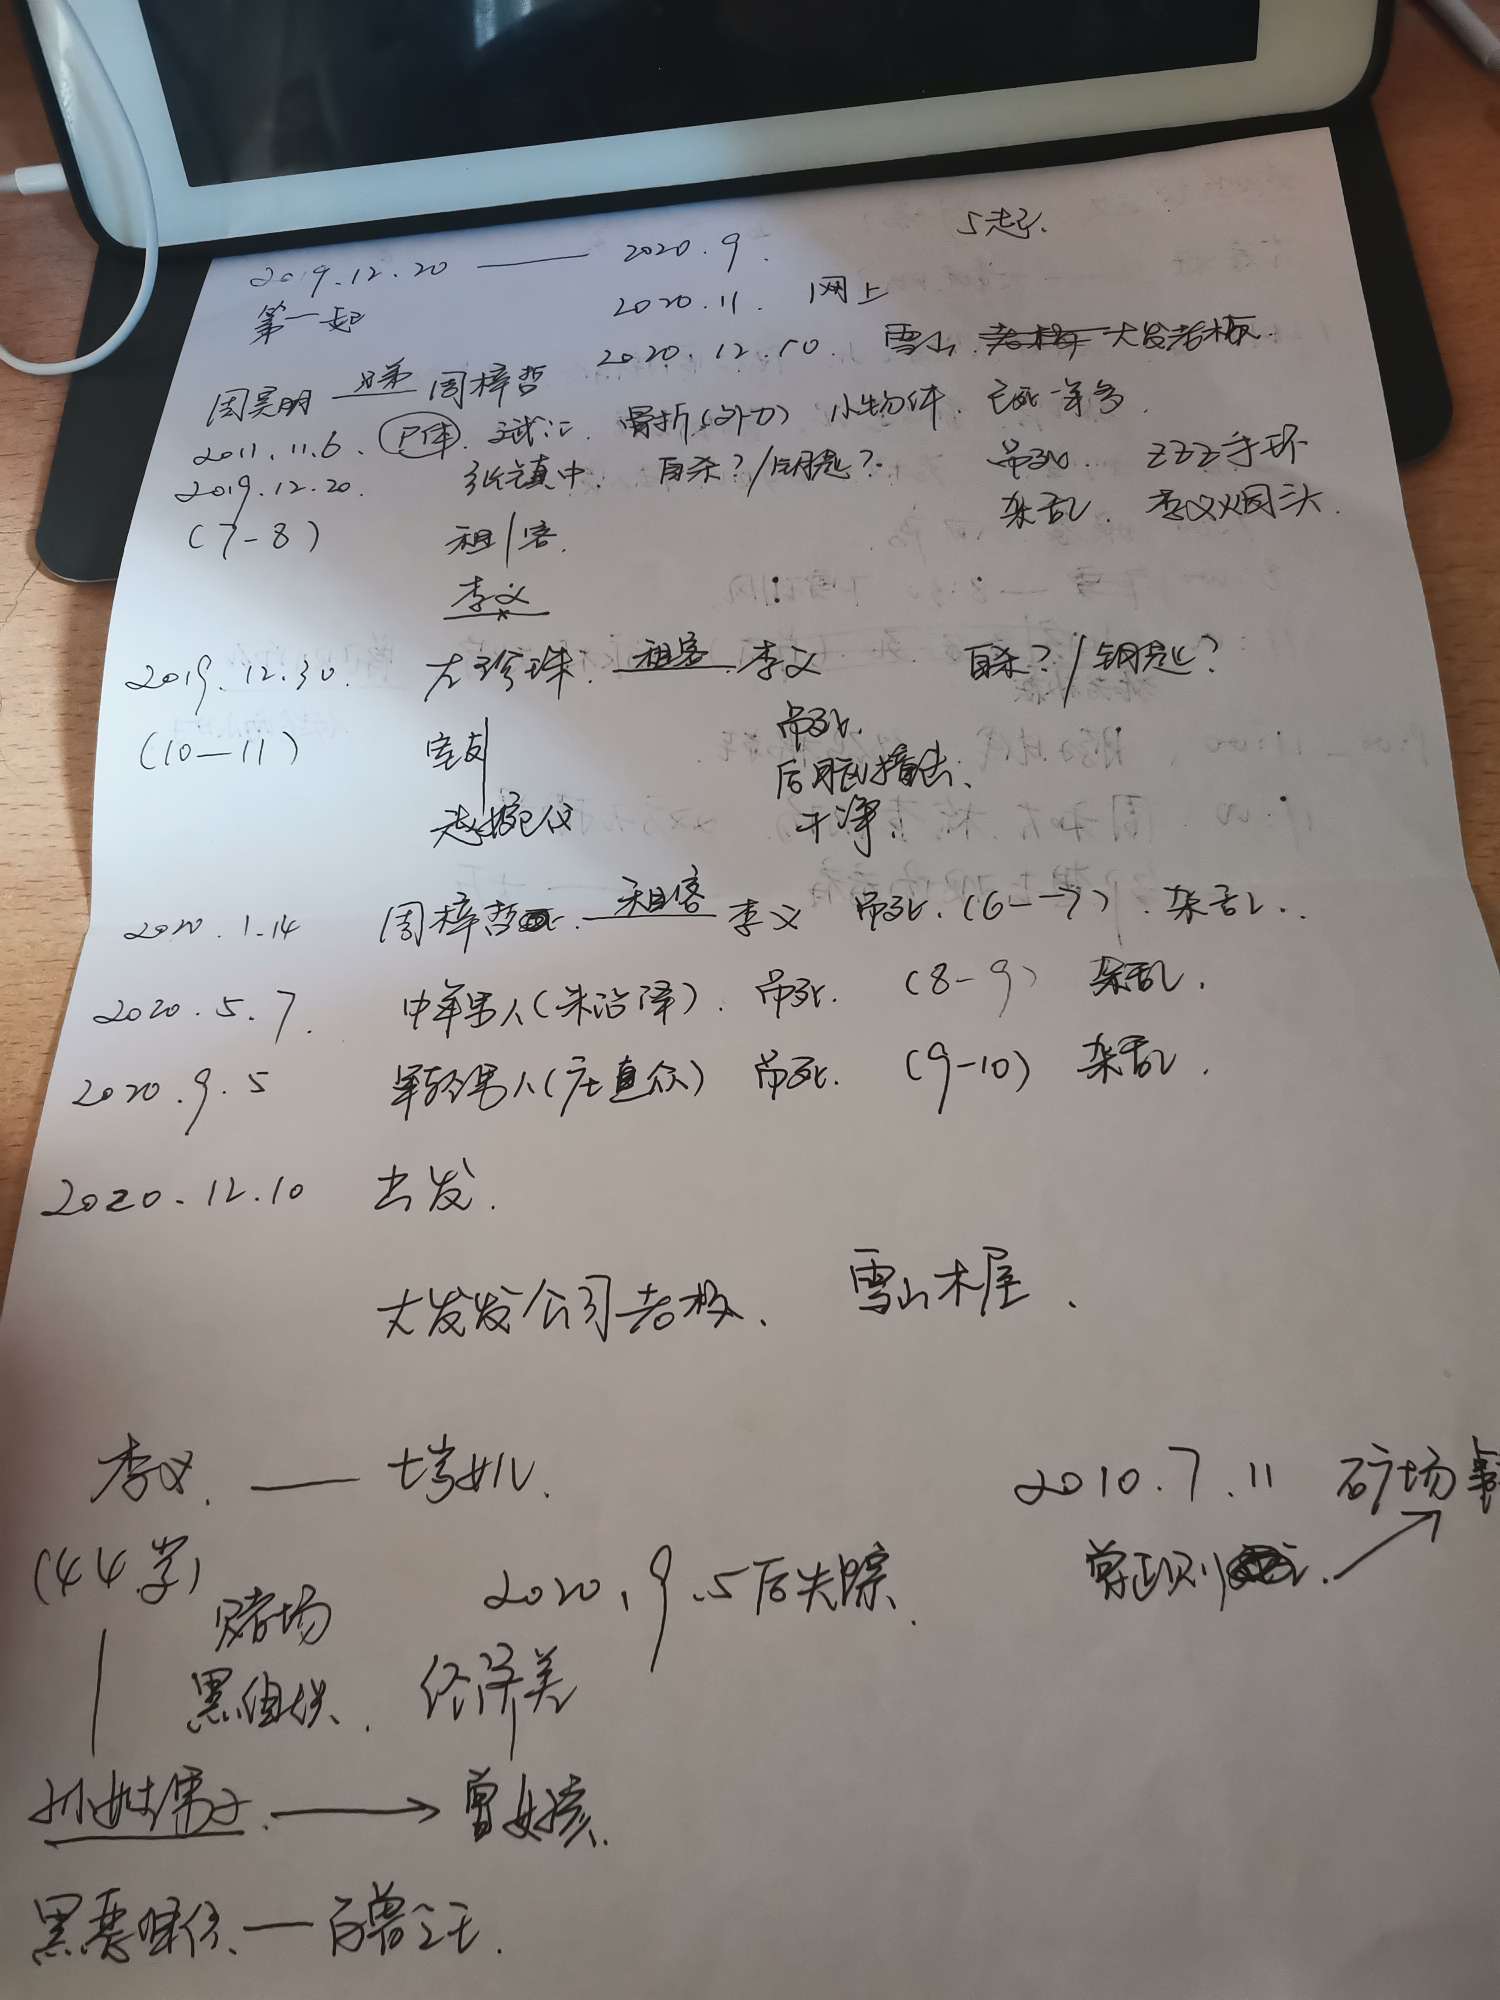 5起.
2019.12.20 —— 2020.9.
第一起 2020.11. 网上
2020.12.10. 雪山. 大发老板.
周昊明 兄弟 周梓哲
2011.11.6. 尸体. 骨折(外力) 小物件. 已死一年多.
2019.12.20. 张镇中. 自杀?/钥匙?. 吊死. ZZZ手环
(7-8) 租客. 杂乱. 李义烟头.
李义
2019.12.30. 左珍珠. 租客. 李义 自杀?/钥匙?
(10—11) 室友 吊死.
后脑撞击.
赵婉仪 干净.
2020.1.14 周梓哲. 租客 李义 吊死. (6—7). 杂乱..
2020.5.7. 中年男人(朱治泽). 吊死. (8-9) 杂乱.
2020.9.5 年轻男人(庄直众) 吊死. (9-10) 杂乱.
2020.12.10 出发.
大发发公司老板. 雪山木屋.
李义. —— 瑞如. 2010.7.11 矿场
(44岁) 2020.9.5后失踪.
赌场
黑
孙姓男子. → 曾女孩.
黑恶 — 百兽之王.